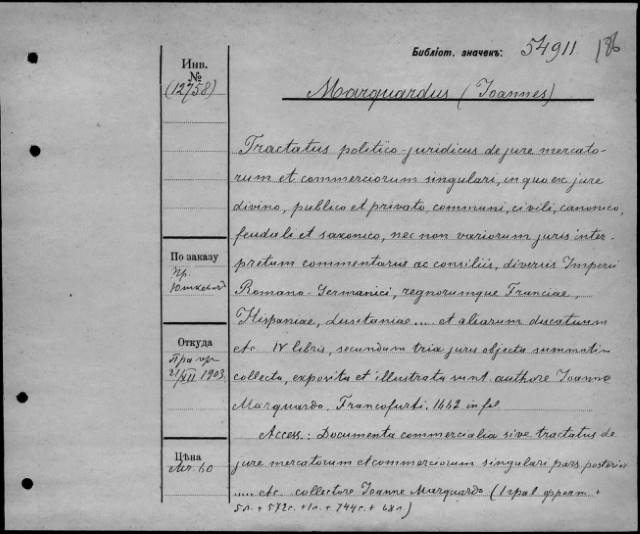 Библіот. значекъ: 54911 186
Инв.
№
(12758)
Marquardus (Joannes)
Tractatus politico-juridicus de jure mercato-
rum et commerciorum singulari, in quo ex jure
divino, publico et privato, communi, civili, canonico,
feudali et saxonico, nec non variorum juris inter-
pretum commentariis ac consiliis, diversis Imperii
Romano-Germanici, regnorumque Franciae,
Hispaniae, Lusitaniae ..... et aliarum ducatuum
etc IV libris, secundum tria juris objecta summatim
collecta, exposita et illustrata sunt authore Joanne
Marquardo. Francofurti. 1662 in fol
Access.: Documenta commercialia sive tractatus de
jure mercatorum et commerciorum singulari pars posterior
..... etc. collectore Joanne Marquardo (1 грав фронт +
5л. + 572с. + 1л. + 744с. + 68л)
По заказу
пр.
Откуда
21/XII 1903
Цѣна
Mr. 60